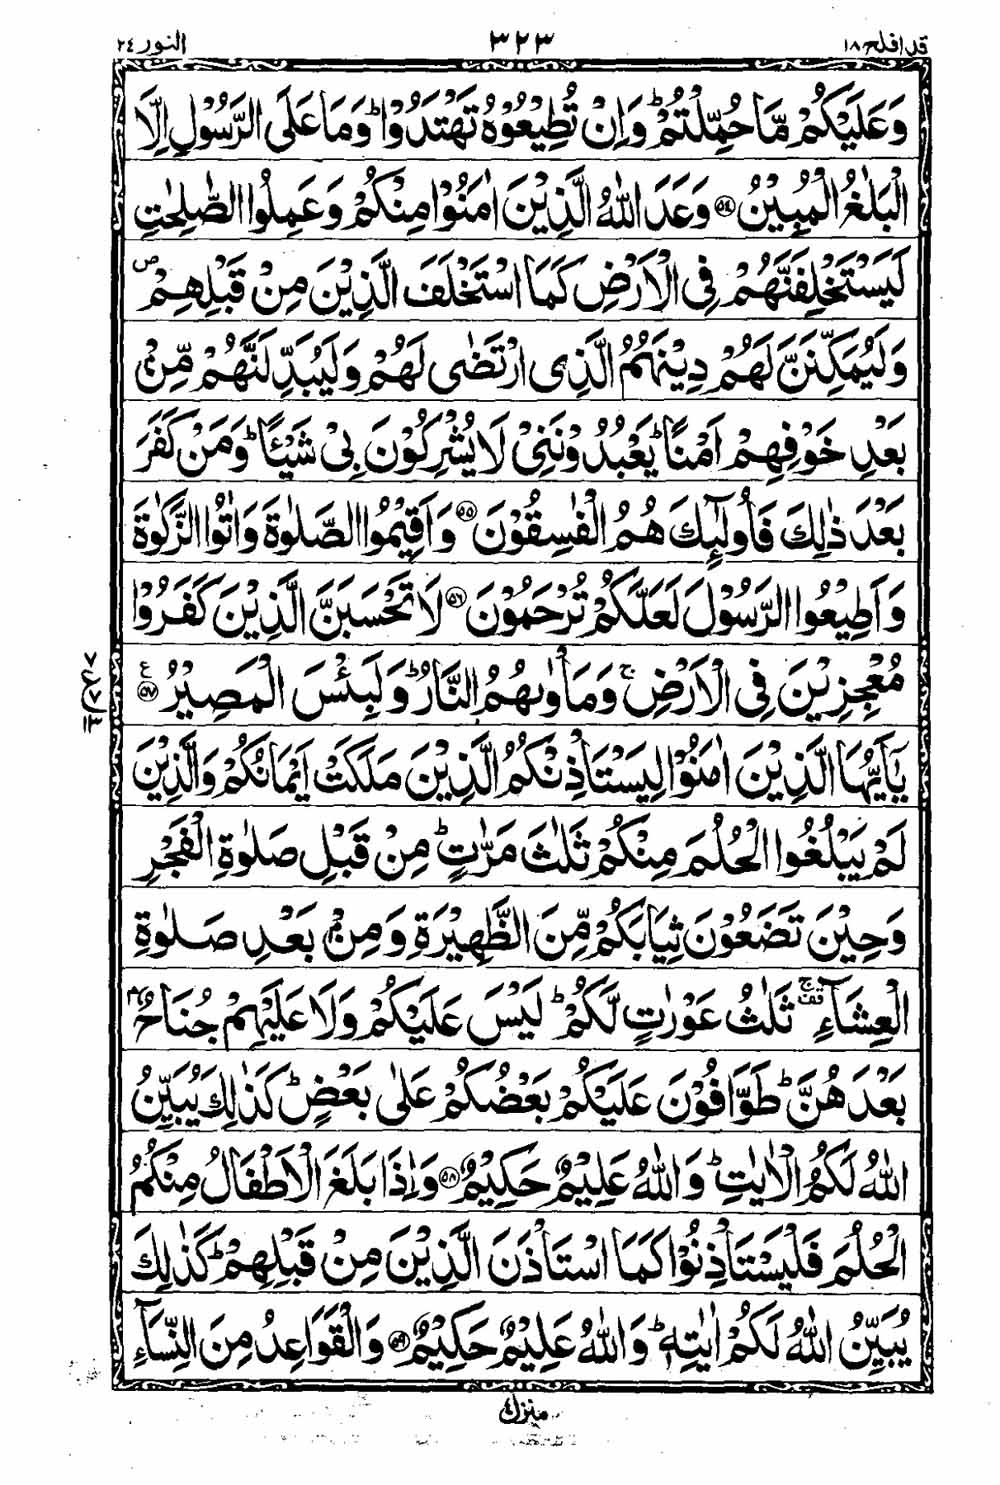 قد افلح ١٨ ٣٢٣ النور ٢٤
وَعَلَيْكُمْ مَّا حُمِّلْتُمْ ؕ وَاِنْ تُطِيْعُوْهُ تَهْتَدُوْا ؕ وَمَا عَلَى الرَّسُوْلِ اِلَّا
الْبَلٰغُ الْمُبِيْنُ ﴿٥٤﴾ وَعَدَ اللّٰهُ الَّذِيْنَ اٰمَنُوْا مِنْكُمْ وَعَمِلُوا الصّٰلِحٰتِ
لَيَسْتَخْلِفَنَّهُمْ فِى الْاَرْضِ كَمَا اسْتَخْلَفَ الَّذِيْنَ مِنْ قَبْلِهِمْ ۪
وَلَيُمَكِّنَنَّ لَهُمْ دِيْنَهُمُ الَّذِى ارْتَضٰى لَهُمْ وَلَيُبَدِّلَنَّهُمْ مِّنْۢ
بَعْدِ خَوْفِهِمْ اَمْنًا ؕ يَعْبُدُوْنَنِىْ لَا يُشْرِكُوْنَ بِىْ شَيْـًٔا ؕ وَمَنْ كَفَرَ
بَعْدَ ذٰلِكَ فَاُولٰٓئِكَ هُمُ الْفٰسِقُوْنَ ﴿٥٥﴾ وَاَقِيْمُوا الصَّلٰوةَ وَاٰتُوا الزَّكٰوةَ
وَاَطِيْعُوا الرَّسُوْلَ لَعَلَّكُمْ تُرْحَمُوْنَ ﴿٥٦﴾ لَا تَحْسَبَنَّ الَّذِيْنَ كَفَرُوْا
مُعْجِزِيْنَ فِى الْاَرْضِ ۚ وَمَاْوٰىهُمُ النَّارُ ؕ وَلَبِئْسَ الْمَصِيْرُ ﴿٥٧﴾ ع
يٰۤاَيُّهَا الَّذِيْنَ اٰمَنُوْا لِيَسْتَاْذِنْكُمُ الَّذِيْنَ مَلَكَتْ اَيْمَانُكُمْ وَالَّذِيْنَ
لَمْ يَبْلُغُوا الْحُلُمَ مِنْكُمْ ثَلٰثَ مَرّٰتٍ ؕ مِنْ قَبْلِ صَلٰوةِ الْفَجْرِ
وَحِيْنَ تَضَعُوْنَ ثِيَابَكُمْ مِّنَ الظَّهِيْرَةِ وَمِنْۢ بَعْدِ صَلٰوةِ
الْعِشَآءِ ؕ۟ ثَلٰثُ عَوْرٰتٍ لَّكُمْ ؕ لَيْسَ عَلَيْكُمْ وَلَا عَلَيْهِمْ جُنَاحٌۢ
بَعْدَهُنَّ ؕ طَوّٰفُوْنَ عَلَيْكُمْ بَعْضُكُمْ عَلٰى بَعْضٍ ؕ كَذٰلِكَ يُبَيِّنُ
اللّٰهُ لَكُمُ الْاٰيٰتِ ؕ وَاللّٰهُ عَلِيْمٌ حَكِيْمٌ ﴿٥٨﴾ وَاِذَا بَلَغَ الْاَطْفَالُ مِنْكُمُ
الْحُلُمَ فَلْيَسْتَاْذِنُوْا كَمَا اسْتَاْذَنَ الَّذِيْنَ مِنْ قَبْلِهِمْ ؕ كَذٰلِكَ
يُبَيِّنُ اللّٰهُ لَكُمْ اٰيٰتِهٖ ؕ وَاللّٰهُ عَلِيْمٌ حَكِيْمٌ ﴿٥٩﴾ وَالْقَوَاعِدُ مِنَ النِّسَآءِ
منزل ٤